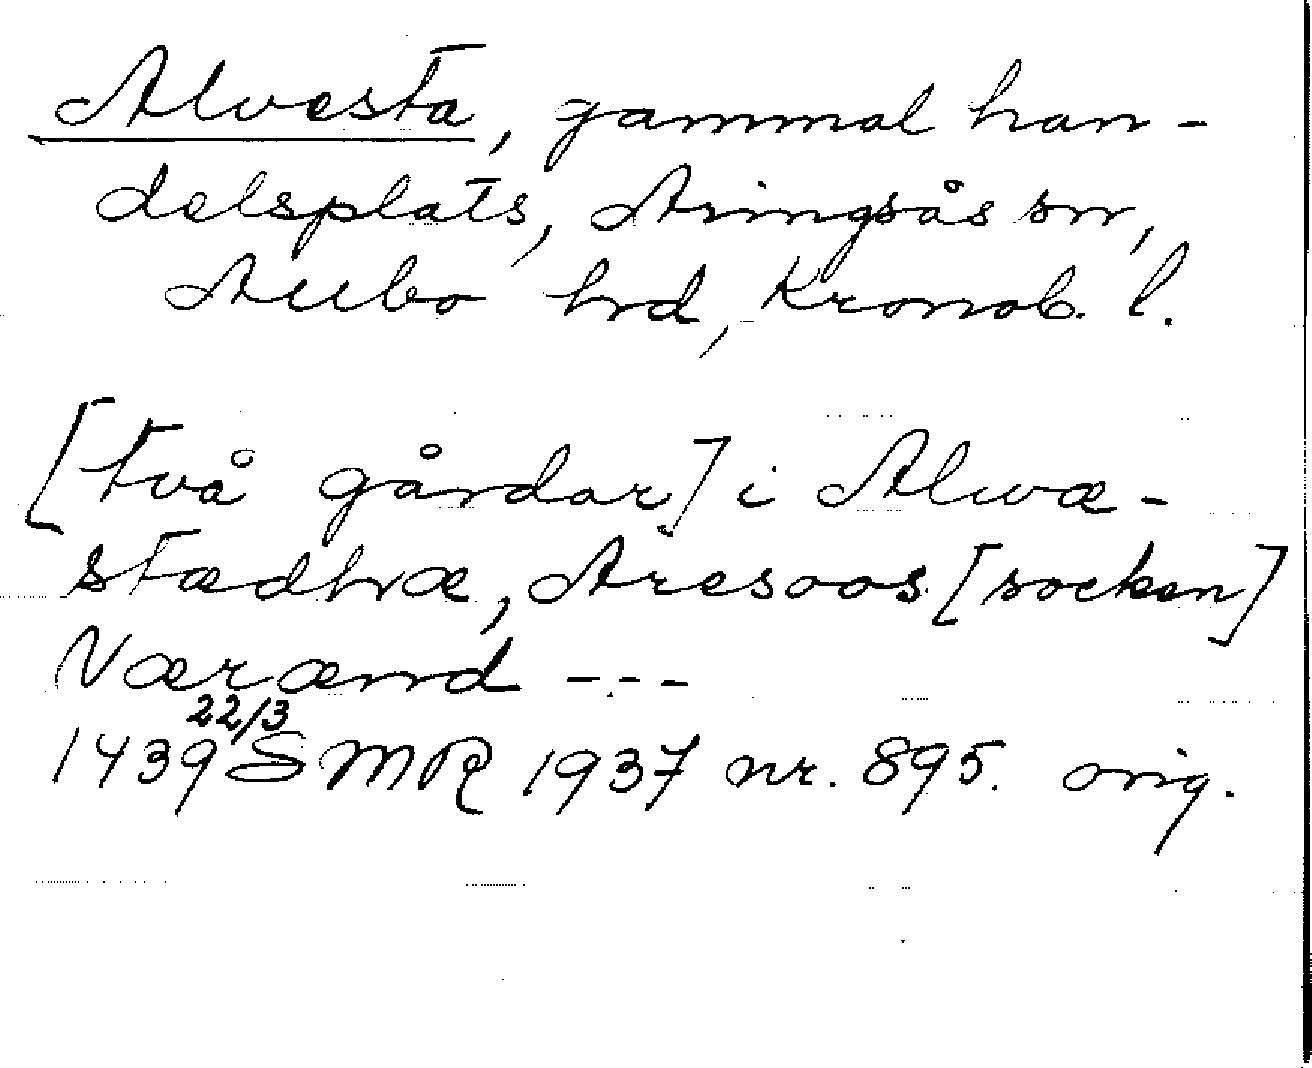 Alvesta, gammal han-
delsplats, Aringsås sn,
Allbo hd, Kronob. l.
[två gårdar] i Alwæ-
stædhæ, Aresoos [socken]
Værænd ---
22/3
1439 SMR 1937 nr. 895. orig.